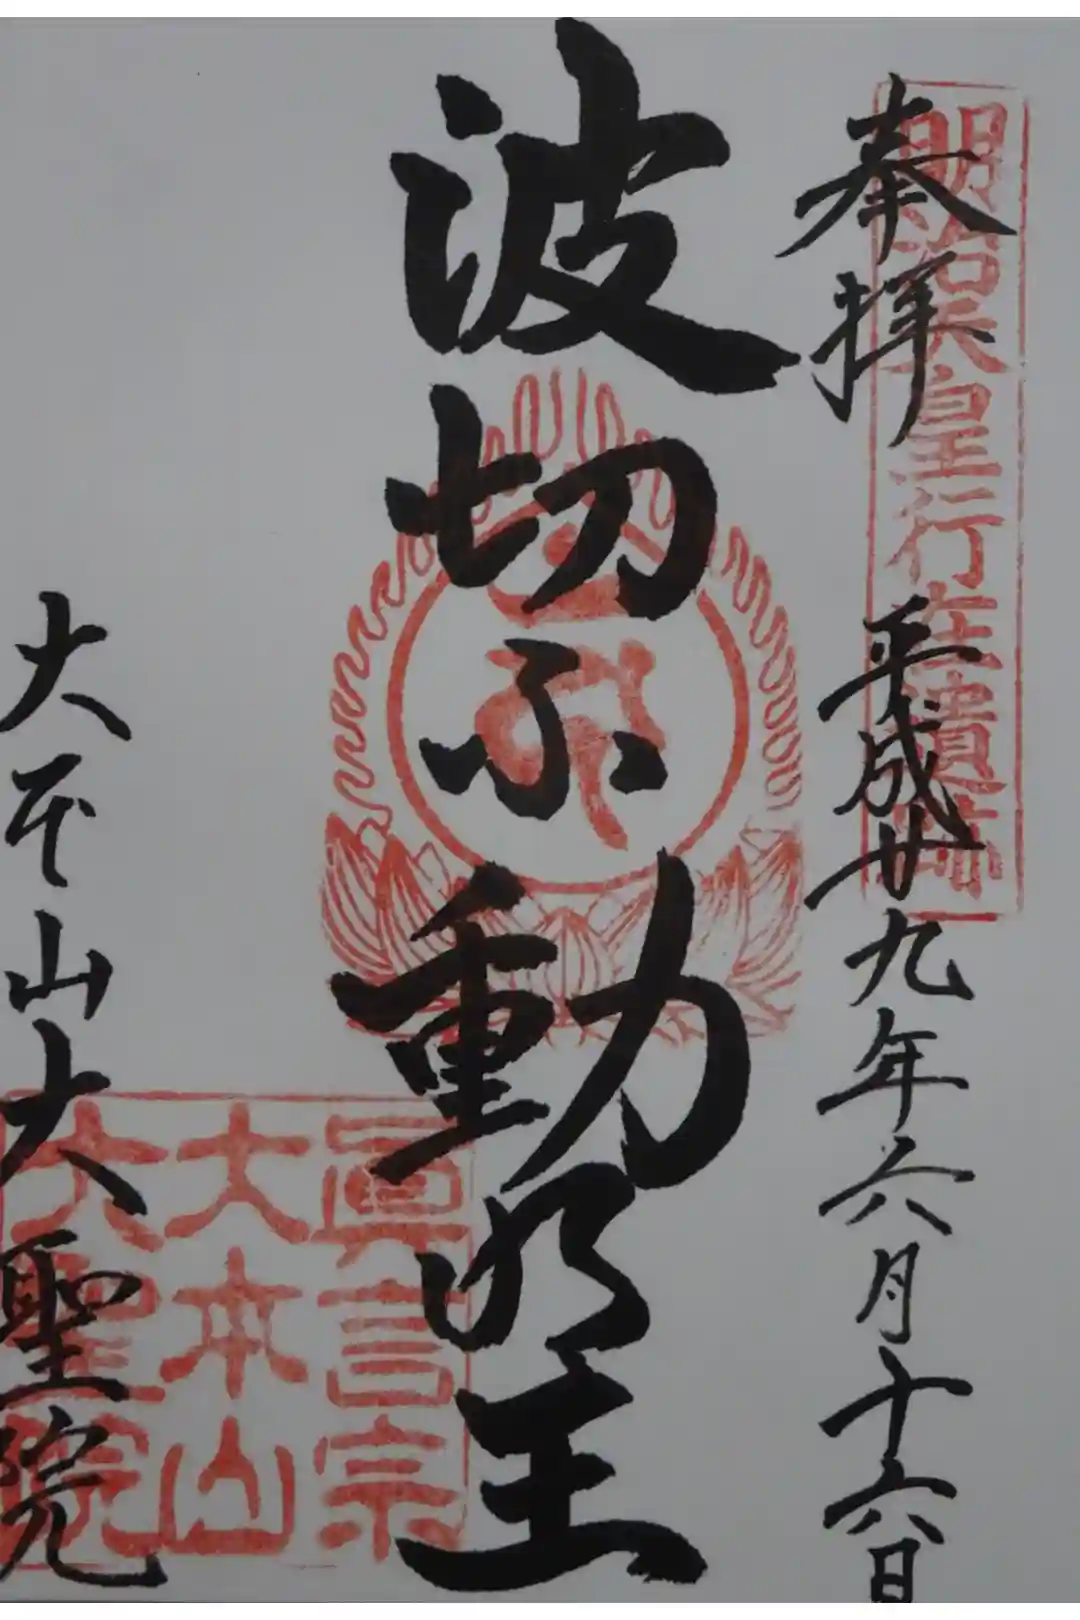 奉拝
平成廿九年六月十六日
明治天皇行在遺跡
波切不動明王
眞言宗
大本山
大聖院
大本山大聖院